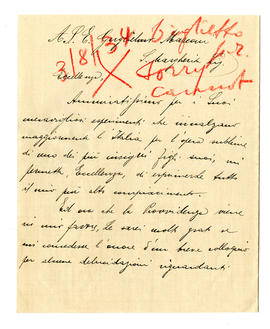 A. S. E. Guglielmo Marconi
S. Margherita Lig.
3/8/34 Biglietto
per
Torry
Carnaut
Eccellenza,
Ammiratissimo per i Suoi
meravigliosi esperimenti che innalzano
maggiormente l'Italia per l'opera sublime
di uno dei più insigni figli suoi, mi
permetto, Eccellenza, di esprimerle tutto
il mio più alto compiacimento.
Ed ora che la Provvidenza viene
in mio favore, Le sarei molto grato se
mi concedesse l'onore d'un breve colloquio
per alcune delucidazioni riguardanti